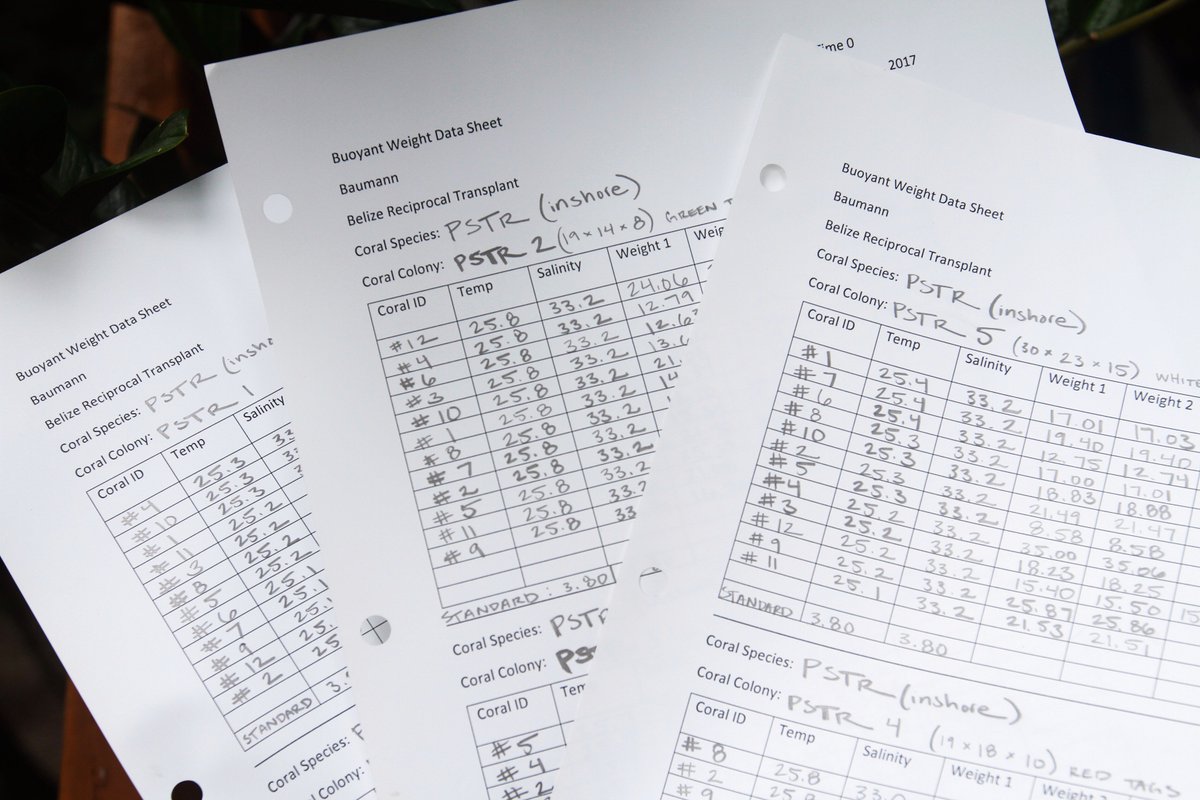 Buoyant Weight Data Sheet
Baumann
Belize Reciprocal Transplant
Coral Species: PSTR (insho
Coral Colony: PSTR 1
Coral ID Temp Salinity
#4 25.3 33
#10 25.3
#1 25.3
#11 25.2
#3 25.2
#8 25.2
#5 25.2
#6 25.1
#7 25.1
#9 25.
#12 25
#2
STANDARD 3.
Coral Species:
Coral Colony:
Time 0
2017
Buoyant Weight Data Sheet
Baumann
Belize Reciprocal Transplant
Coral Species: PSTR (inshore)
Coral Colony: PSTR 2 (19 x 14 x 8) GREEN T
Coral ID Temp Salinity Weight 1 Weig
#12 25.8 33.2 24.06
#4 25.8 33.2 12.79
#6 25.8 33.2 12.6
#3 25.8 33.2 13.6
#10 25.8 33.2 21.
#1 25.8 33.2 14
#8 25.8 33.2
#7 25.8 33.2
#2 25.8 33.2
#5 25.8 33.2
#11 25.8 33
#9 25.8
STANDARD: 3.80
Coral Species: PSTR
Coral Colony: PS
Coral ID Tem
#5
#4
#2
Buoyant Weight Data Sheet
Baumann
Belize Reciprocal Transplant
Coral Species: PSTR (inshore)
Coral Colony: PSTR 5 (30 x 23 x 15) WHITE
Coral ID Temp Salinity Weight 1 Weight 2
#1 25.4 33.2 17.01 17.03
#7 25.4 33.2 19.40 19.40
#6 25.4 33.2 12.75 12.74
#8 25.3 33.2 17.00 17.01
#10 25.3 33.2 18.83 18.88
#2 25.3 33.2 21.49 21.47
#5 25.3 33.2 8.58 8.58
#4 25.2 33.2 35.00 35.06
#3 25.2 33.2 18.23 18.25
#12 25.2 33.2 15.40 15.50 15
#9 25.2 33.2 25.87 25.86
#11 25.1 33.2 21.53 21.51
STANDARD 3.80 3.80
Coral Species: PSTR (inshore)
Coral Colony: PSTR 4 (19 x 18 x 10) RED TAGS
Coral ID Temp Salinity Weight 1 Weight
#8 25.8 33.
#2 25.8
#9